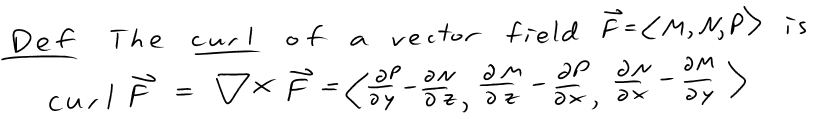 Def The curl of a vector field F⃗ = ⟨M, N, P⟩ is
curl F⃗ = ∇ × F⃗ = ⟨∂P/∂y − ∂N/∂z, ∂M/∂z − ∂P/∂x, ∂N/∂x − ∂M/∂y⟩